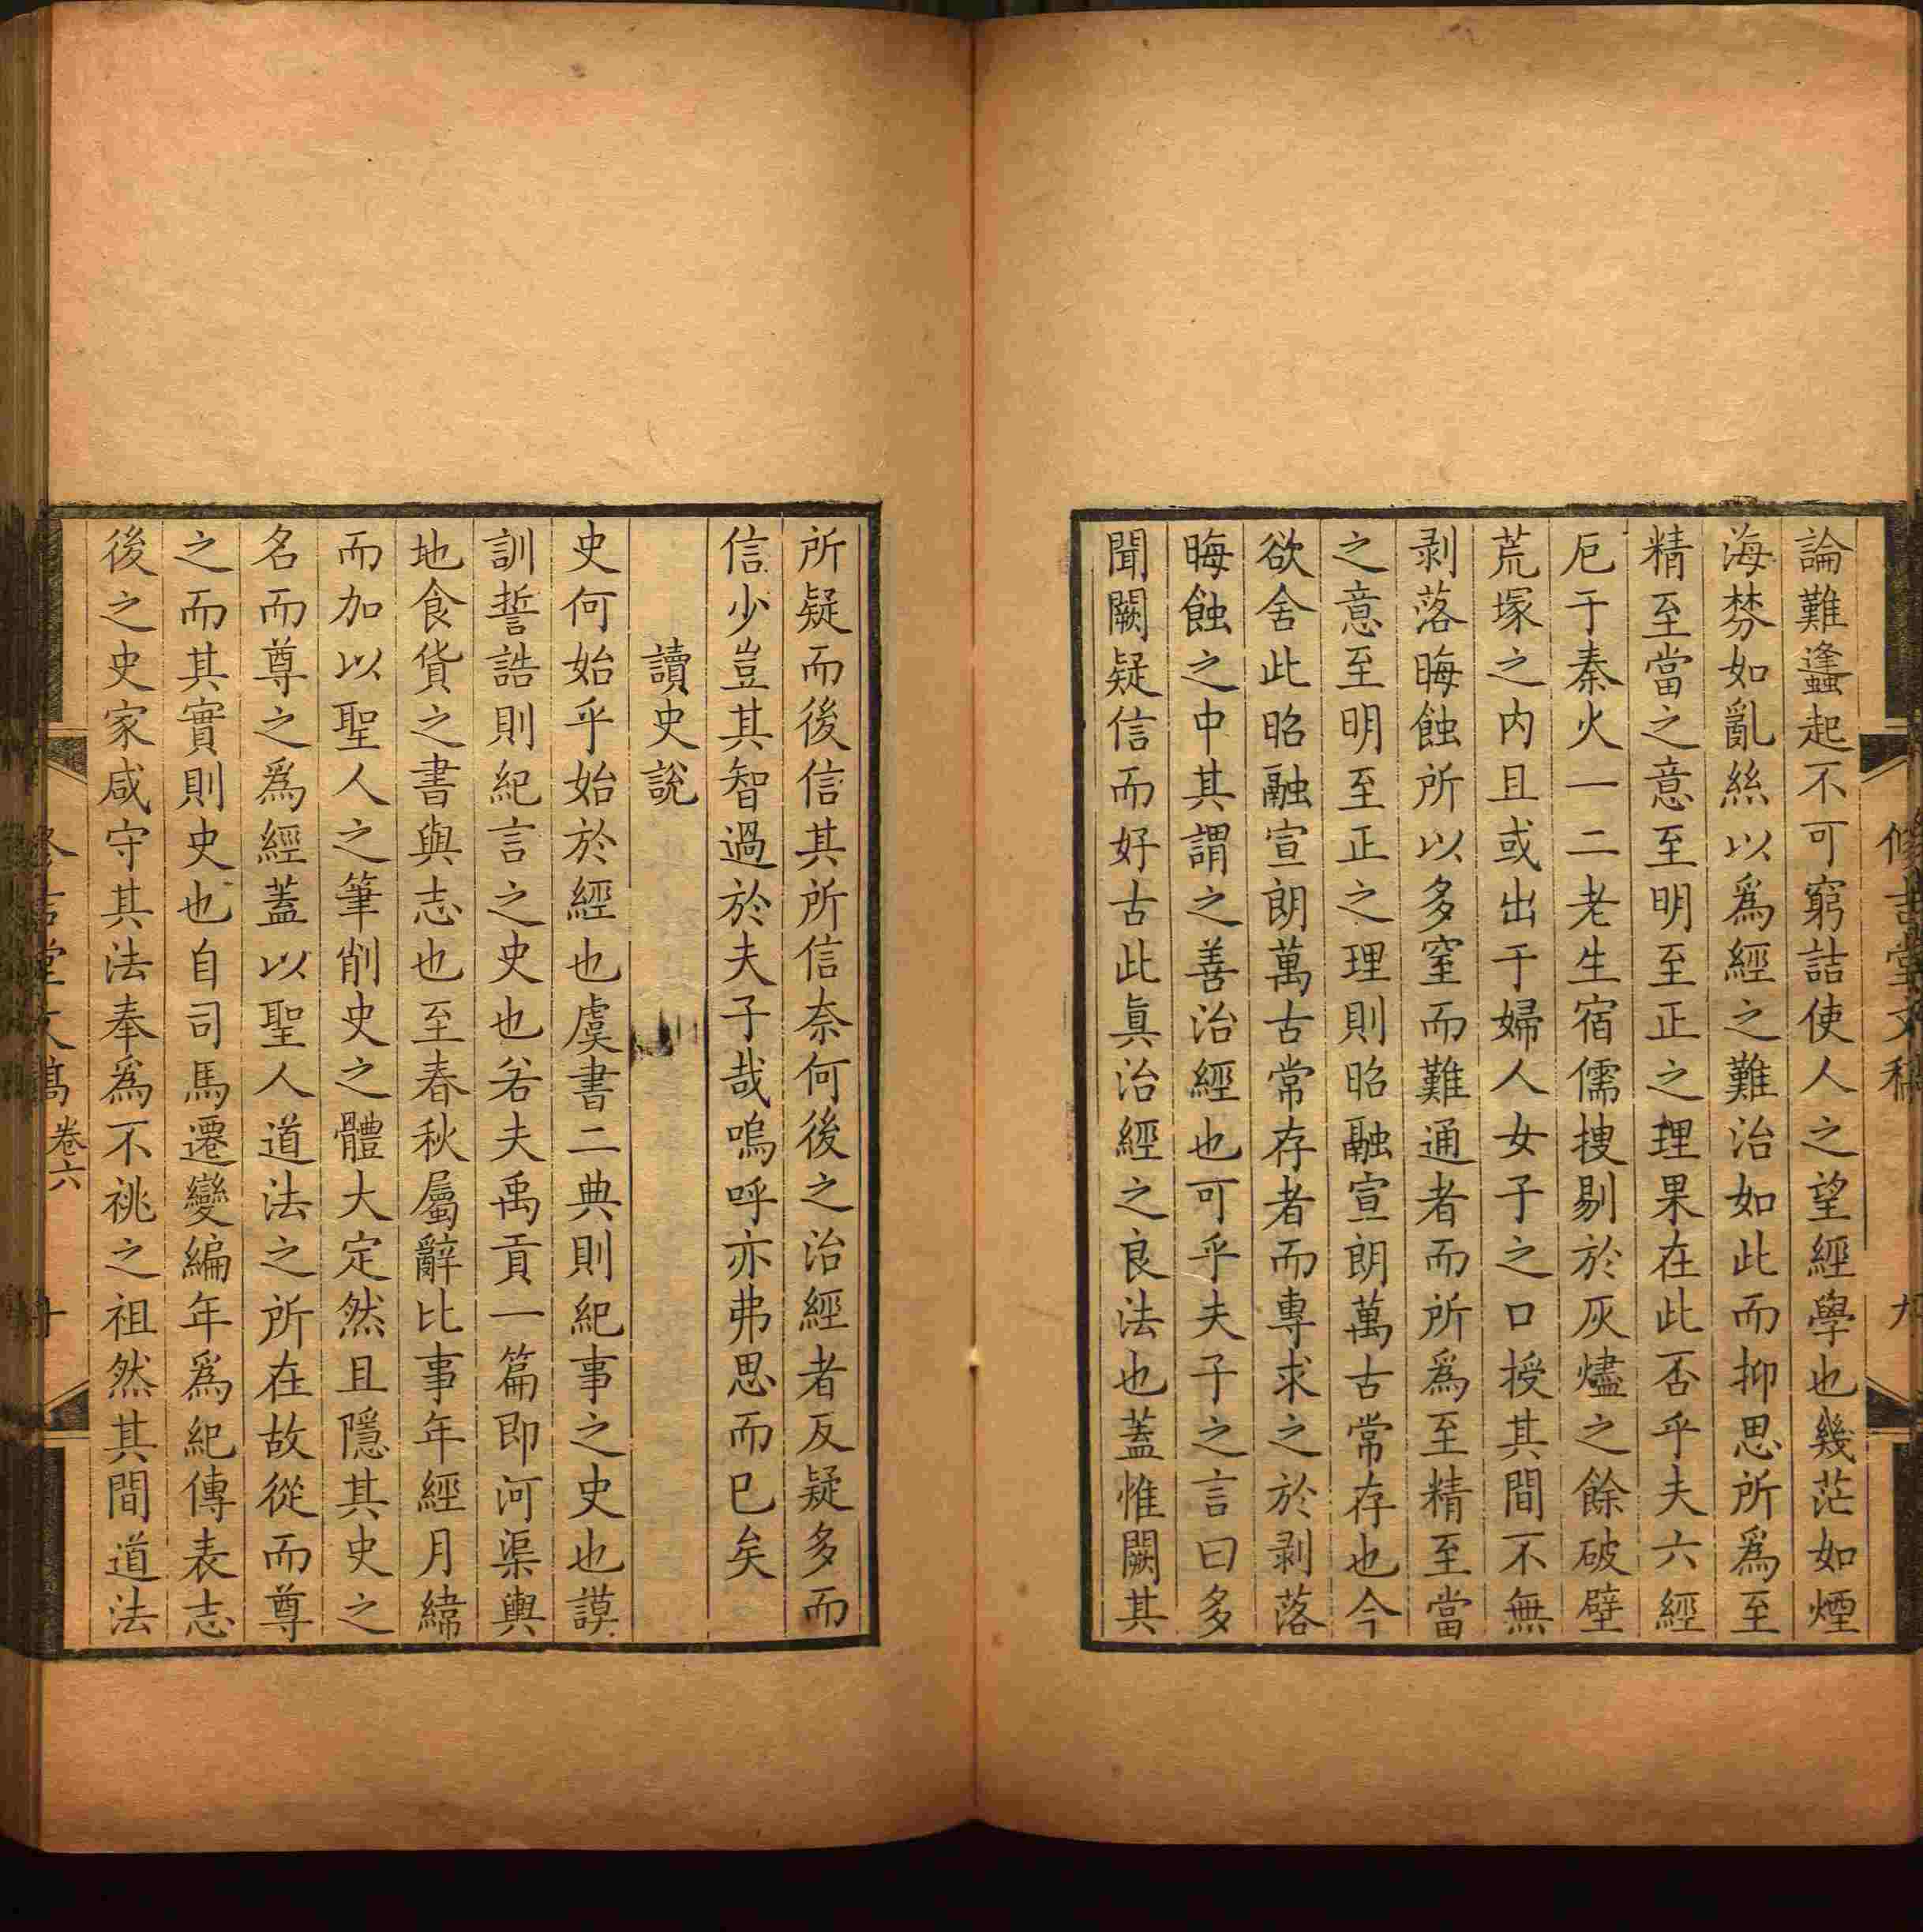 論難蠭起不可窮詰使人之望經學也幾茫如煙
海棼如亂絲以爲經之難治如此而抑思所爲至
精至當之意至明至正之理果在此否乎夫六經
厄于秦火一二老生宿儒搜剔於灰燼之餘破壁
荒塚之内且或出于婦人女子之口授其間不無
剥落晦蝕所以多窒而難通者而所爲至精至當
之意至明至正之理則昭融宣朗萬古常存也今
欲舍此昭融宣朗萬古常存者而專求之於剥落
晦蝕之中其謂之善治經也可乎夫子之言曰多
聞闕疑信而好古此眞治經之良法也蓋惟闕其
所疑而後信其所信奈何後之治經者反疑多而
信少豈其智過於夫子哉嗚呼亦弗思而已矣
讀史說
史何始乎始於經也虞書二典則紀事之史也謨
訓誓誥則紀言之史也若夫禹貢一篇即河渠輿
地食貨之書與志也至春秋屬辭比事年經月緯
而加以聖人之筆削史之體大定然且隱其史之
名而尊之爲經蓋以聖人道法之所在故從而尊
之而其實則史也自司馬遷變編年爲紀傳表志
後之史家咸守其法奉爲不祧之祖然其間道法
堂文稿 卷六 十